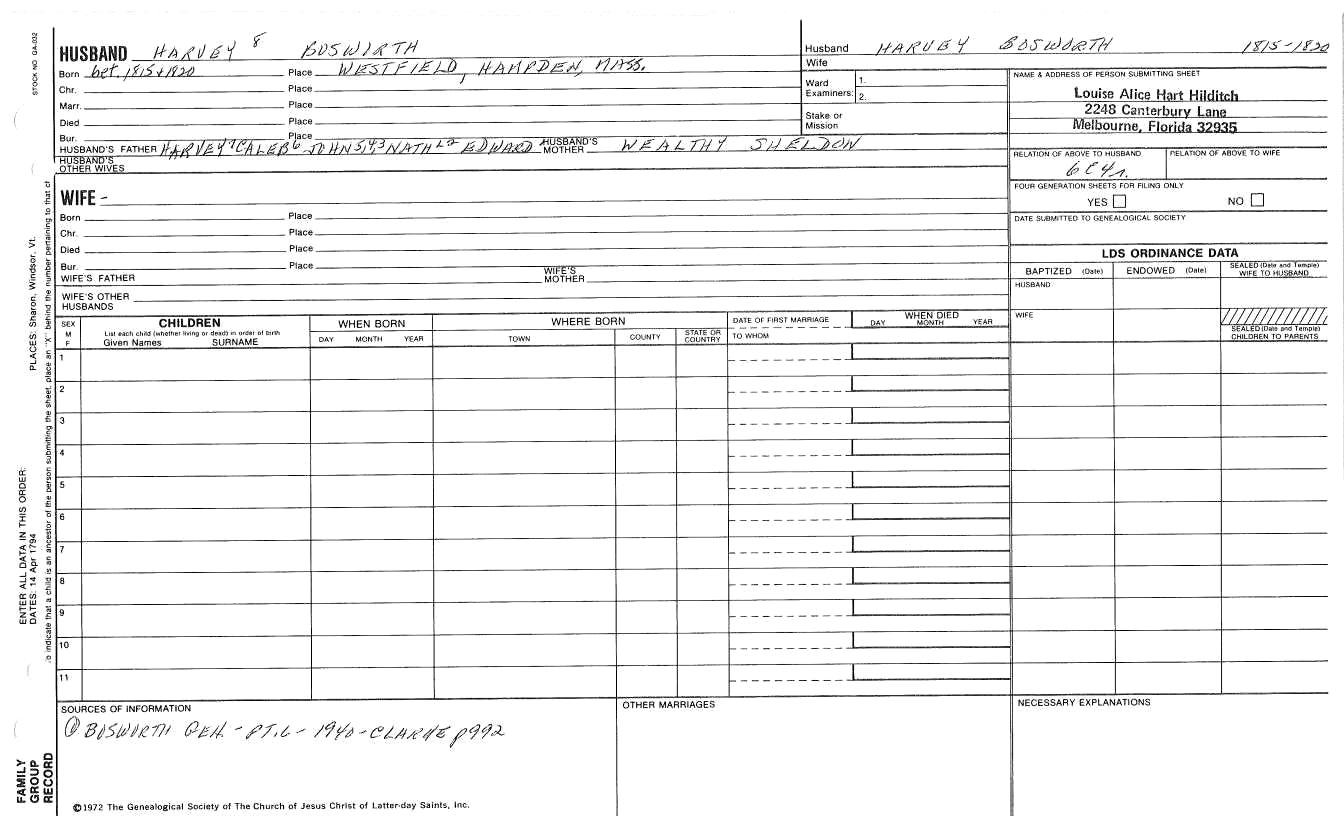 STOCK NO. GA-032
HUSBAND HARVEY 8 BOSWORTH
Born bet. 1815 + 1820 Place WESTFIELD, HAMPDEN, MASS.
Chr. Place
Marr. Place
Died Place
Bur. Place
HUSBAND'S FATHER HARVEY 7 CALEB 6 JOHN 5,4,3 NATHL 2 EDWARD HUSBAND'S MOTHER WEALTHY SHELDON
HUSBAND'S OTHER WIVES
Husband HARVEY BOSWORTH 1815-1820
Wife
Ward Examiners: 1.
2.
Stake or Mission
NAME & ADDRESS OF PERSON SUBMITTING SHEET
Louise Alice Hart Hilditch
2248 Canterbury Lane
Melbourne, Florida 32935
RELATION OF ABOVE TO HUSBAND RELATION OF ABOVE TO WIFE
6C4r.
FOUR GENERATION SHEETS FOR FILING ONLY
YES NO
DATE SUBMITTED TO GENEALOGICAL SOCIETY
WIFE -
Born Place
Chr. Place
Died Place
Bur. Place
WIFE'S FATHER WIFE'S MOTHER
WIFE'S OTHER HUSBANDS
LDS ORDINANCE DATA
BAPTIZED (Date) ENDOWED (Date) SEALED (Date and Temple) WIFE TO HUSBAND
HUSBAND
WIFE
SEALED (Date and Temple) CHILDREN TO PARENTS
SEX M F
CHILDREN
List each child (whether living or dead) in order of birth
Given Names SURNAME
WHEN BORN
DAY MONTH YEAR
WHERE BORN
TOWN COUNTY STATE OR COUNTRY
DATE OF FIRST MARRIAGE
TO WHOM
WHEN DIED
DAY MONTH YEAR
1
2
3
4
5
6
7
8
9
10
11
SOURCES OF INFORMATION
① BOSWORTH GEN. - PT. 6 - 1940 - CLARKE p992
OTHER MARRIAGES
NECESSARY EXPLANATIONS
©1972 The Genealogical Society of The Church of Jesus Christ of Latter-day Saints, Inc.
PLACES: Sharon, Windsor, Vt.
ENTER ALL DATA IN THIS ORDER:
DATES: 14 Apr 1794
to indicate that a child is an ancestor of the person submitting the sheet, place an "X" behind the number pertaining to that c
FAMILY
GROUP
RECORD